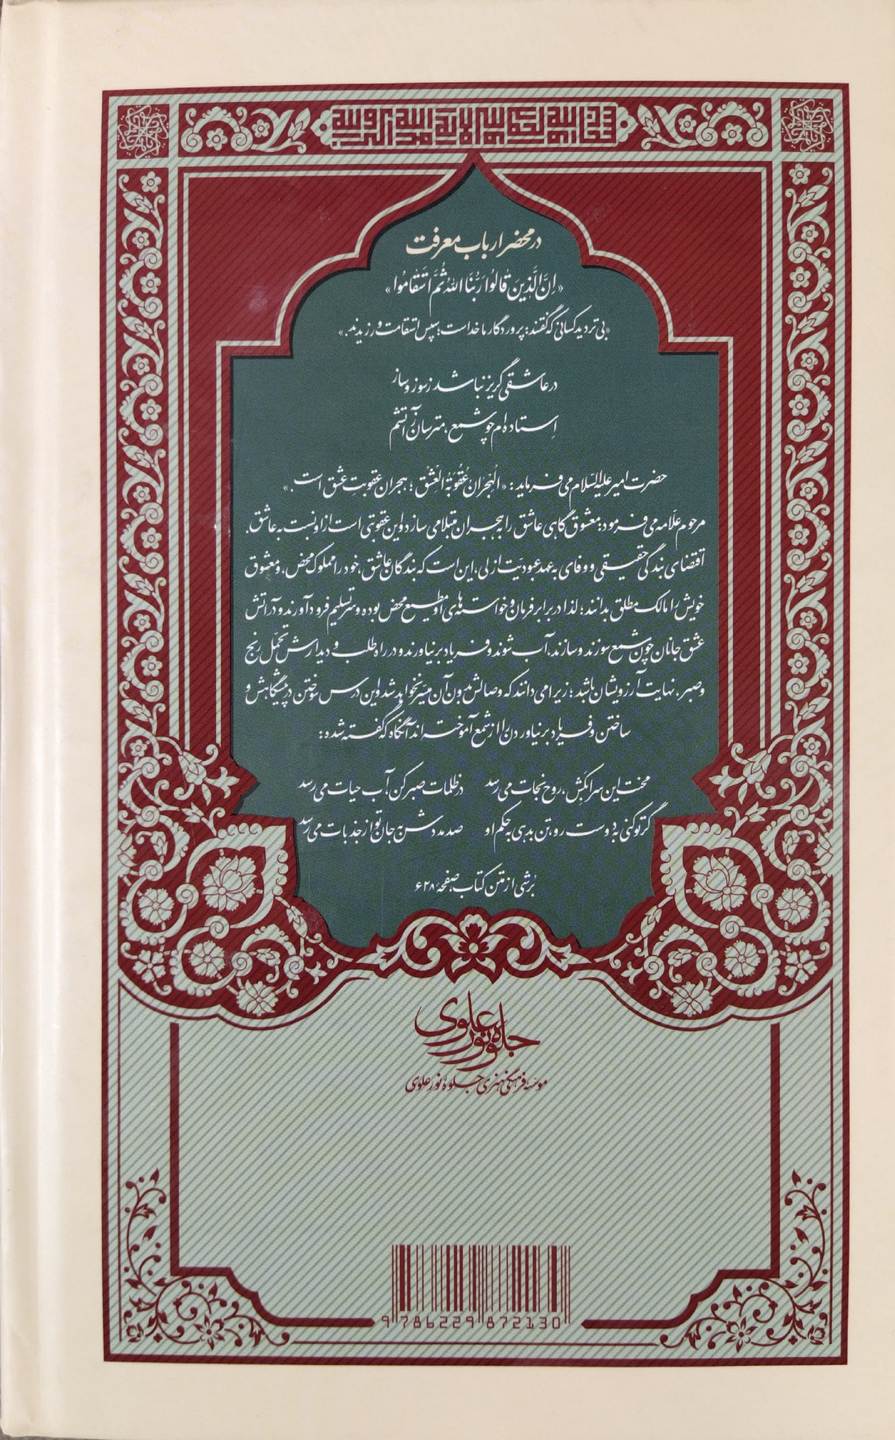 در محضر ارباب معرفت
«اِنَّ الَّذینَ قالُوا رَبُّنَا اللهُ ثُمَّ اسْتَقامُوا»
«بی تردید کسانی که گفتند: پروردگار ما خداست؛ سپس استقامت ورزیدند.»
در عاشقی گریز نباشد ز سوز و ساز
اِستاده‌ام چو شمع، مترسان ز آتشم
حضرت امیر علیه السلام می فرماید: «الْهِجْرانُ عُقُوبَةُ الْعِشْقِ؛ هجران عقوبت عشق است.»
مرحوم علّامه می فرمود: معشوق گاهی عاشق را به هجران مبتلا می سازد و این عقوبتی است از او نسبت به عاشق.
اقتضای بندگی حقیقی و وفای به عهد عبودیت ازلی، این است که بندگان عاشق، خود را مملوک محض، و معشوق
خویش را مالک مطلق بدانند؛ لذا در برابر فرمان و خواسته های او مطیع محض بوده و سر تسلیم فرود آورند و در آتش
عشق جانان چون شمع سوزند و سازند، آب شوند و فریاد بر نیاورند و در راه طلب و دیدارش تحمّل رنج
و صبر، نهایت آرزویشان باشد؛ زیرا می دانند که وصالش بدون آن میسر نخواهد شد و این درس سوختن در پیشگاهش و
ساختن و فریاد بر نیاوردن را از شمع آموخته اند آنگاه که گفته شده:
محنت این سرا بکش، روح نجات می رسد در ظلمات صبر کن! آب حیات می رسد
گر تو کنی به دوست رو، تن بدهی به حکم او صد مدد شِ جان تو از جذبات می رسد
بُرشی از متن کتاب، صفحهٔ ۶۲۸
جلوه نور علوی
موسسه فرهنگی هنری جلوه نور علوی
9 786229 872130